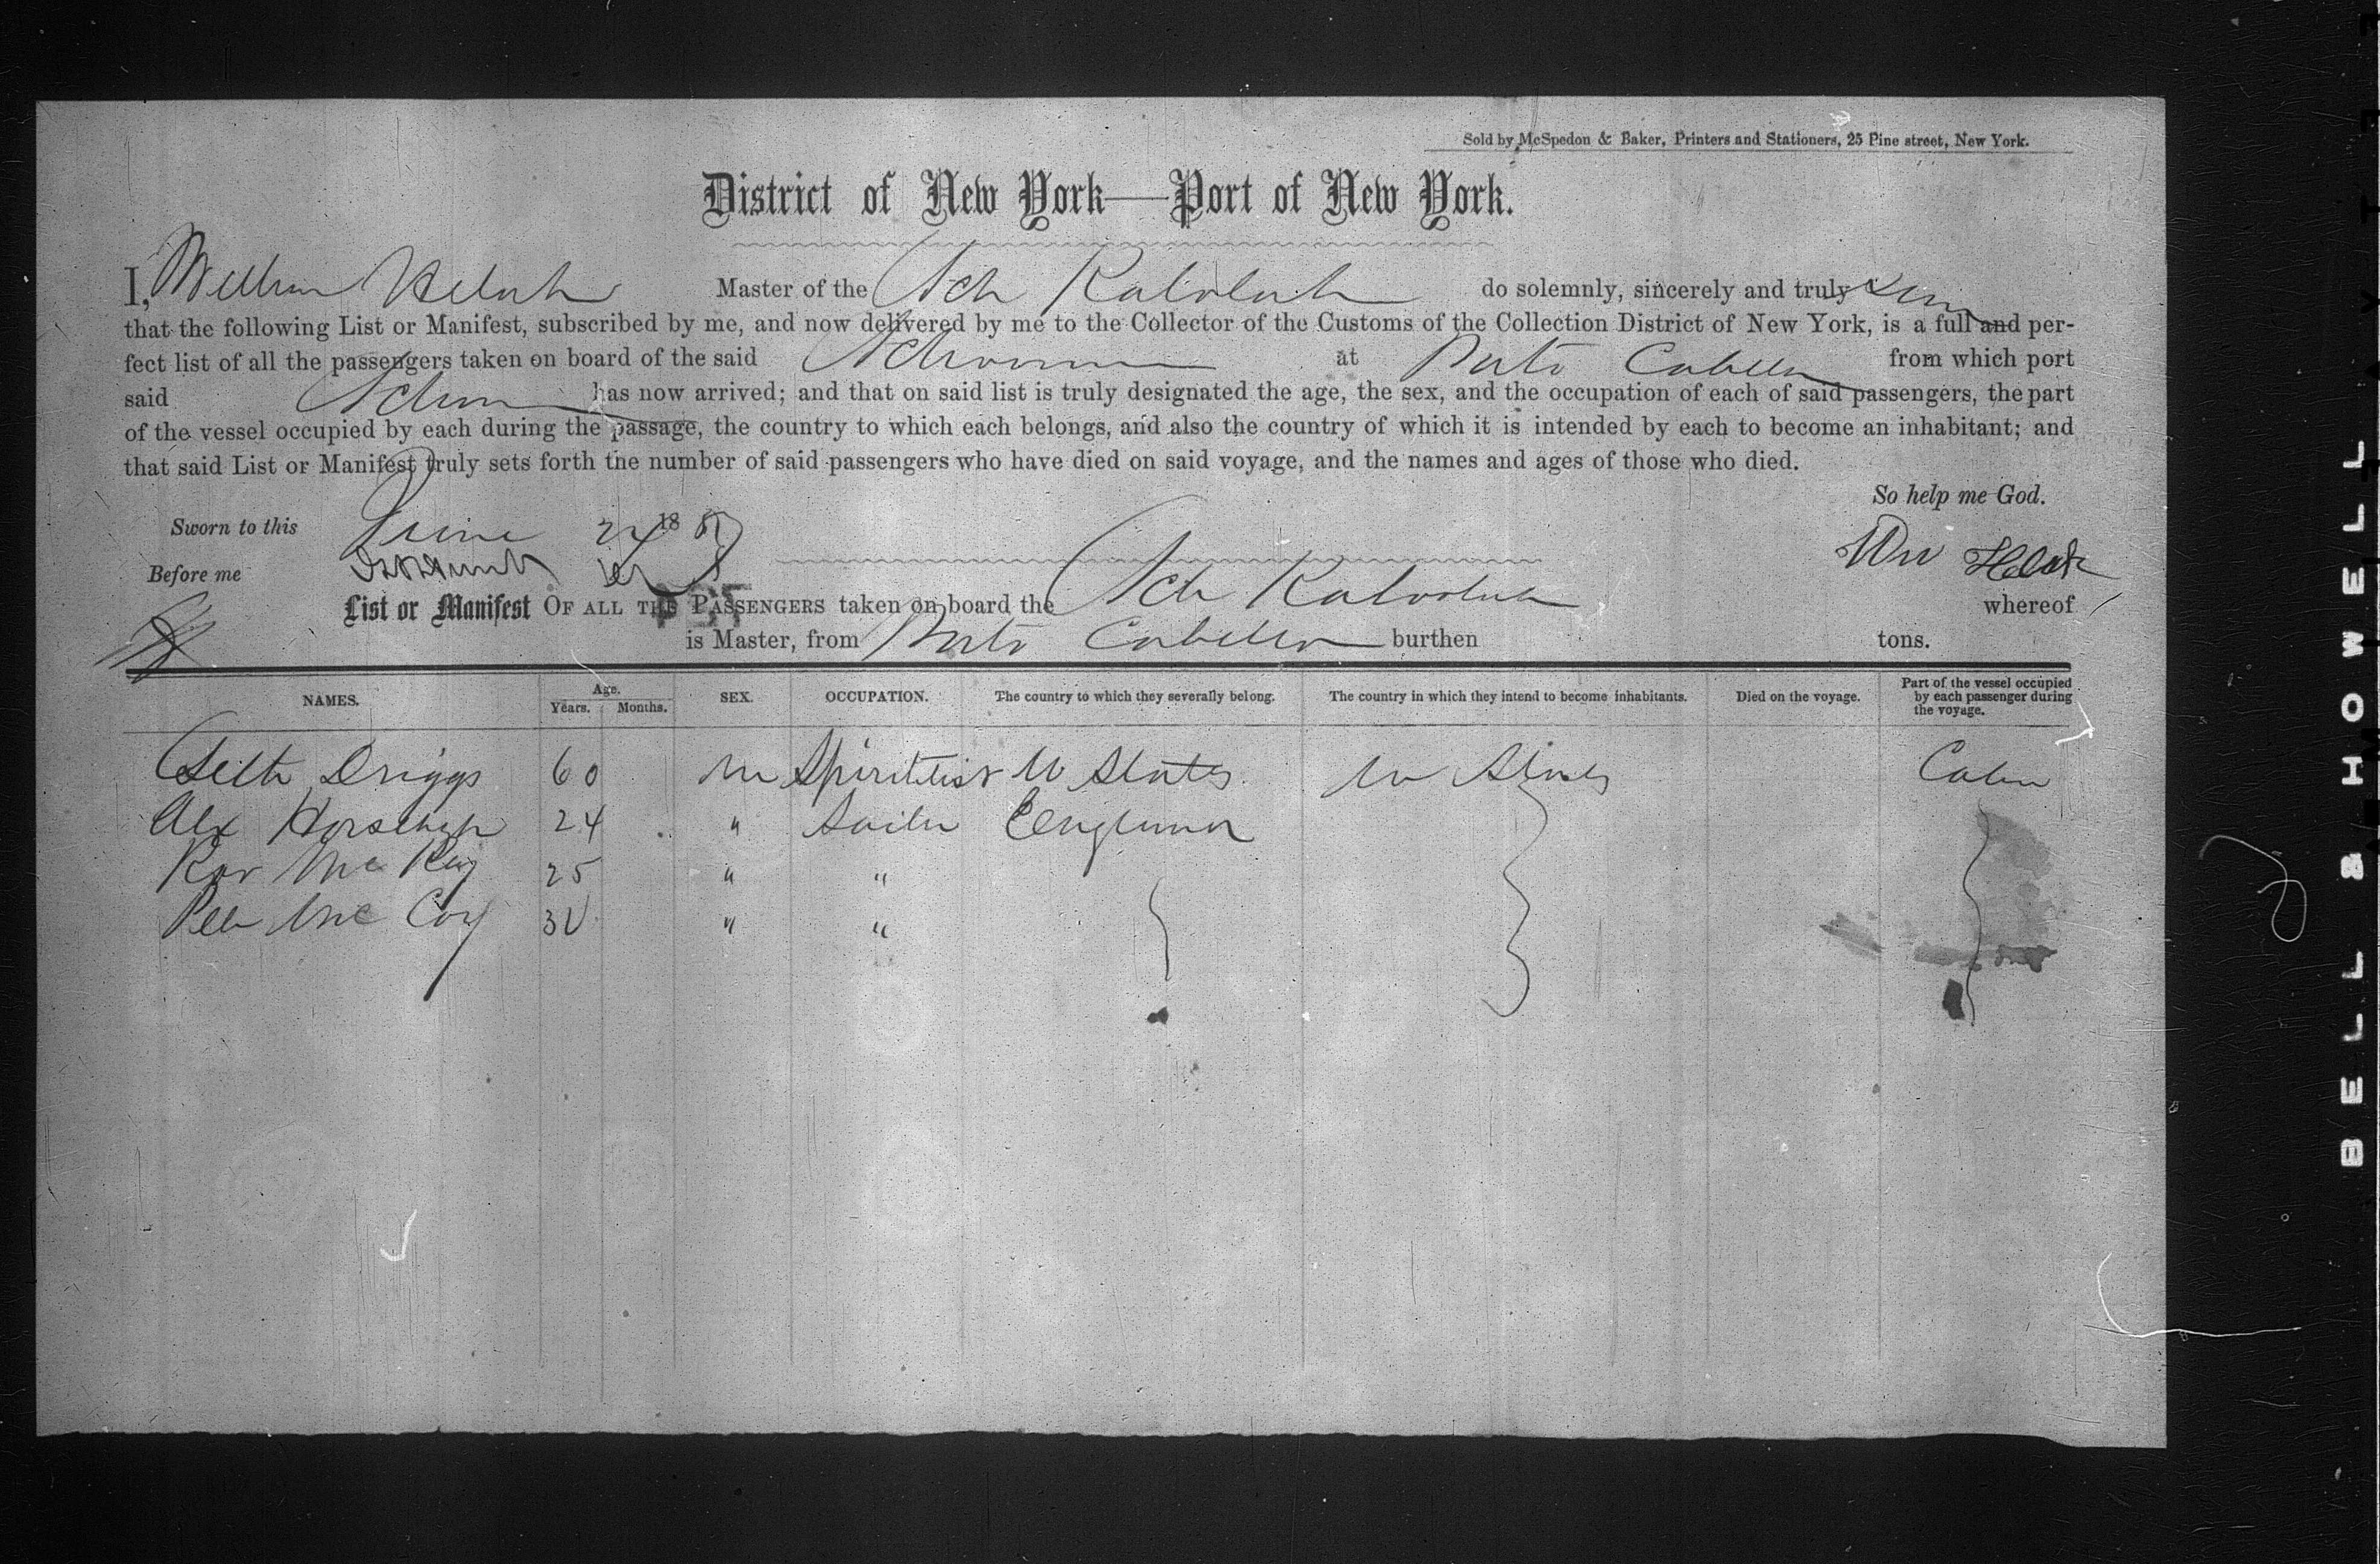 Sold by McSpedon & Baker, Printers and Stationers, 25 Pine street, New York.
District of New York—Port of New York.
I, William Master of the Sch do solemnly, sincerely and truly
that the following List or Manifest, subscribed by me, and now delivered by me to the Collector of the Customs of the Collection District of New York, is a full and per-
fect list of all the passengers taken on board of the said Schooner at Porto Cabello from which port
said Schr has now arrived; and that on said list is truly designated the age, the sex, and the occupation of each of said passengers, the part
of the vessel occupied by each during the passage, the country to which each belongs, and also the country of which it is intended by each to become an inhabitant; and
that said List or Manifest truly sets forth the number of said passengers who have died on said voyage, and the names and ages of those who died.
So help me God.
Sworn to this June 24 18
Before me
Wm
List or Manifest OF ALL THE PASSENGERS taken on board the Sch whereof
is Master, from Porto Cabello burthen tons.
NAMES. Age. Years. Months. SEX. OCCUPATION. The country to which they severally belong. The country in which they intend to become inhabitants. Died on the voyage. Part of the vessel occupied by each passenger during the voyage.
Seth Driggs 60 m Spiritelist U States U States Cabin
Alex 24 " Sailor England
Mc 25 " "
Mc Coy " "
BELL & HOWELL